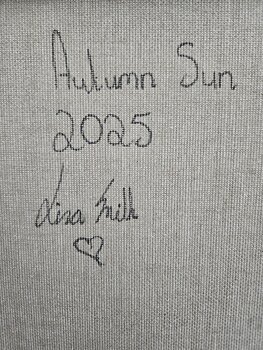 Autumn Sun
2025
Lisa Smith